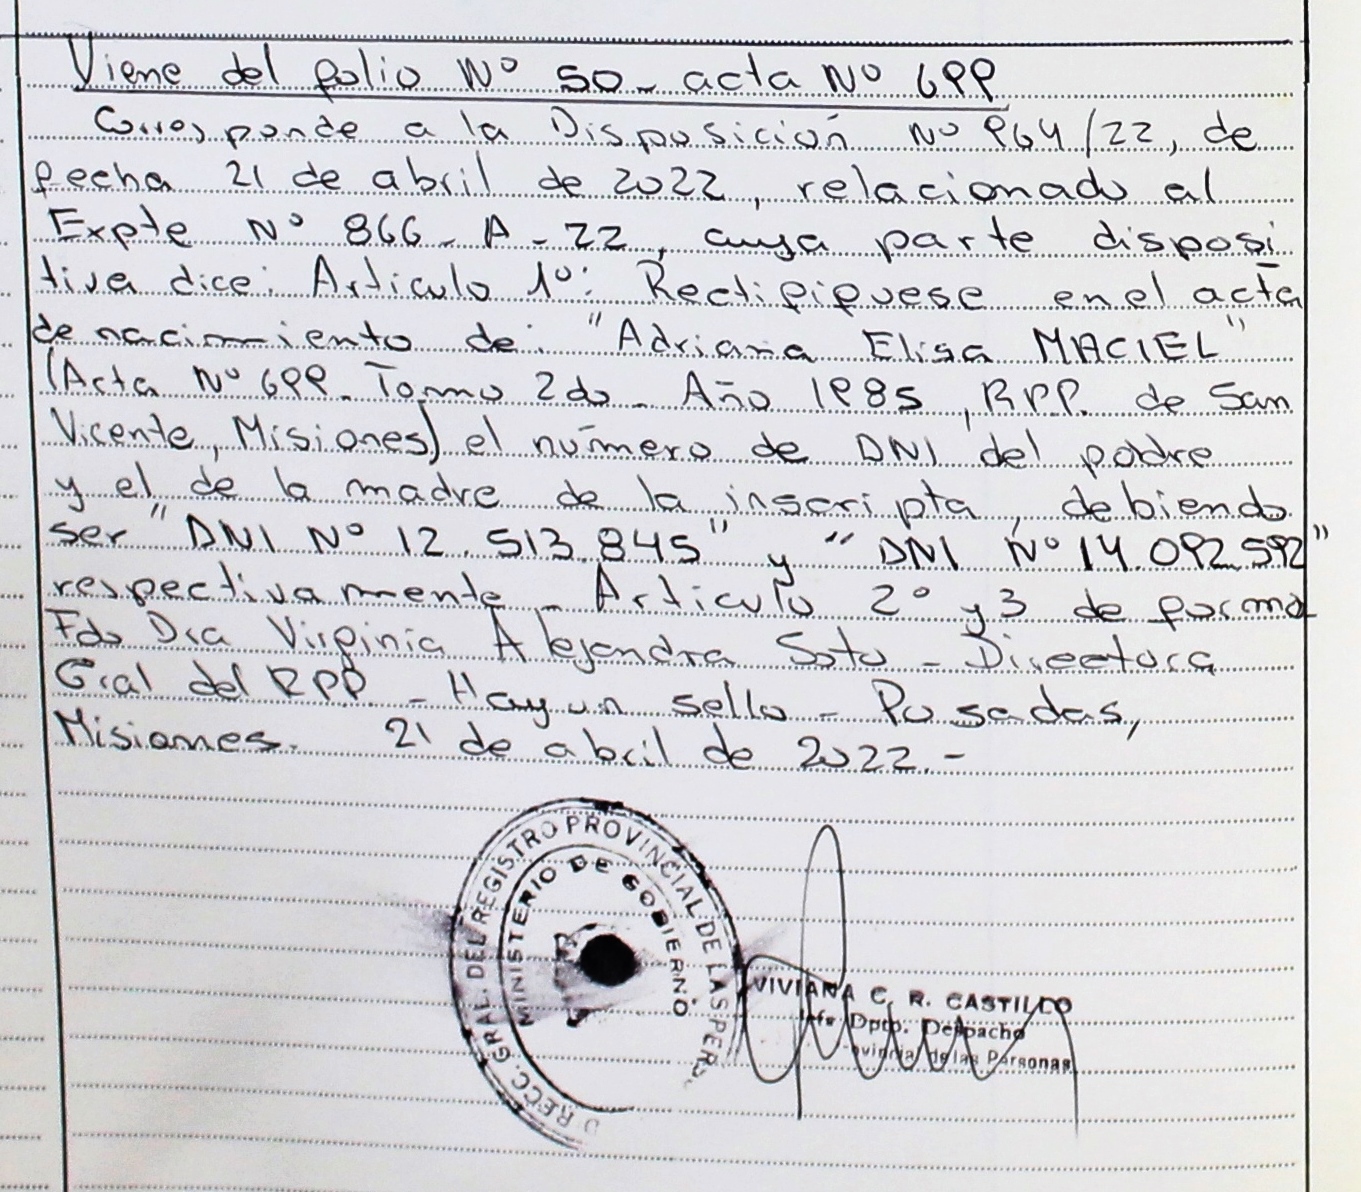 Viene del folio Nº 50 - acta Nº 699
Corresponde a la Disposición Nº 964/22, de
fecha 21 de abril de 2022, relacionado al
Expte Nº 866 - A - 22, cuya parte disposi
tiva dice: Artículo 1º: Rectifíquese en el acta
de nacimiento de: "Adriana Elisa MACIEL"
(Acta Nº 699 - Tomo 2do - Año 1985, RPP. de San
Vicente, Misiones) el número de DNI del padre
y el de la madre de la inscripta, debiendo
ser "DNI Nº 12.513.845" y "DNI Nº 14.092.592"
respectivamente - Artículo 2º y 3 de forma
Fdo Dra Virginia Alejandra Soto - Directora
Gral del RPP - Hay un sello - Posadas,
Misiones. 21 de abril de 2022.-
DIRECC. GRAL. DEL REGISTRO PROVINCIAL DE LAS PERS
MINISTERIO DE GOBIERNO
VIVIANA C. R. CASTILLO
Dpto. Despacho
de las Personas